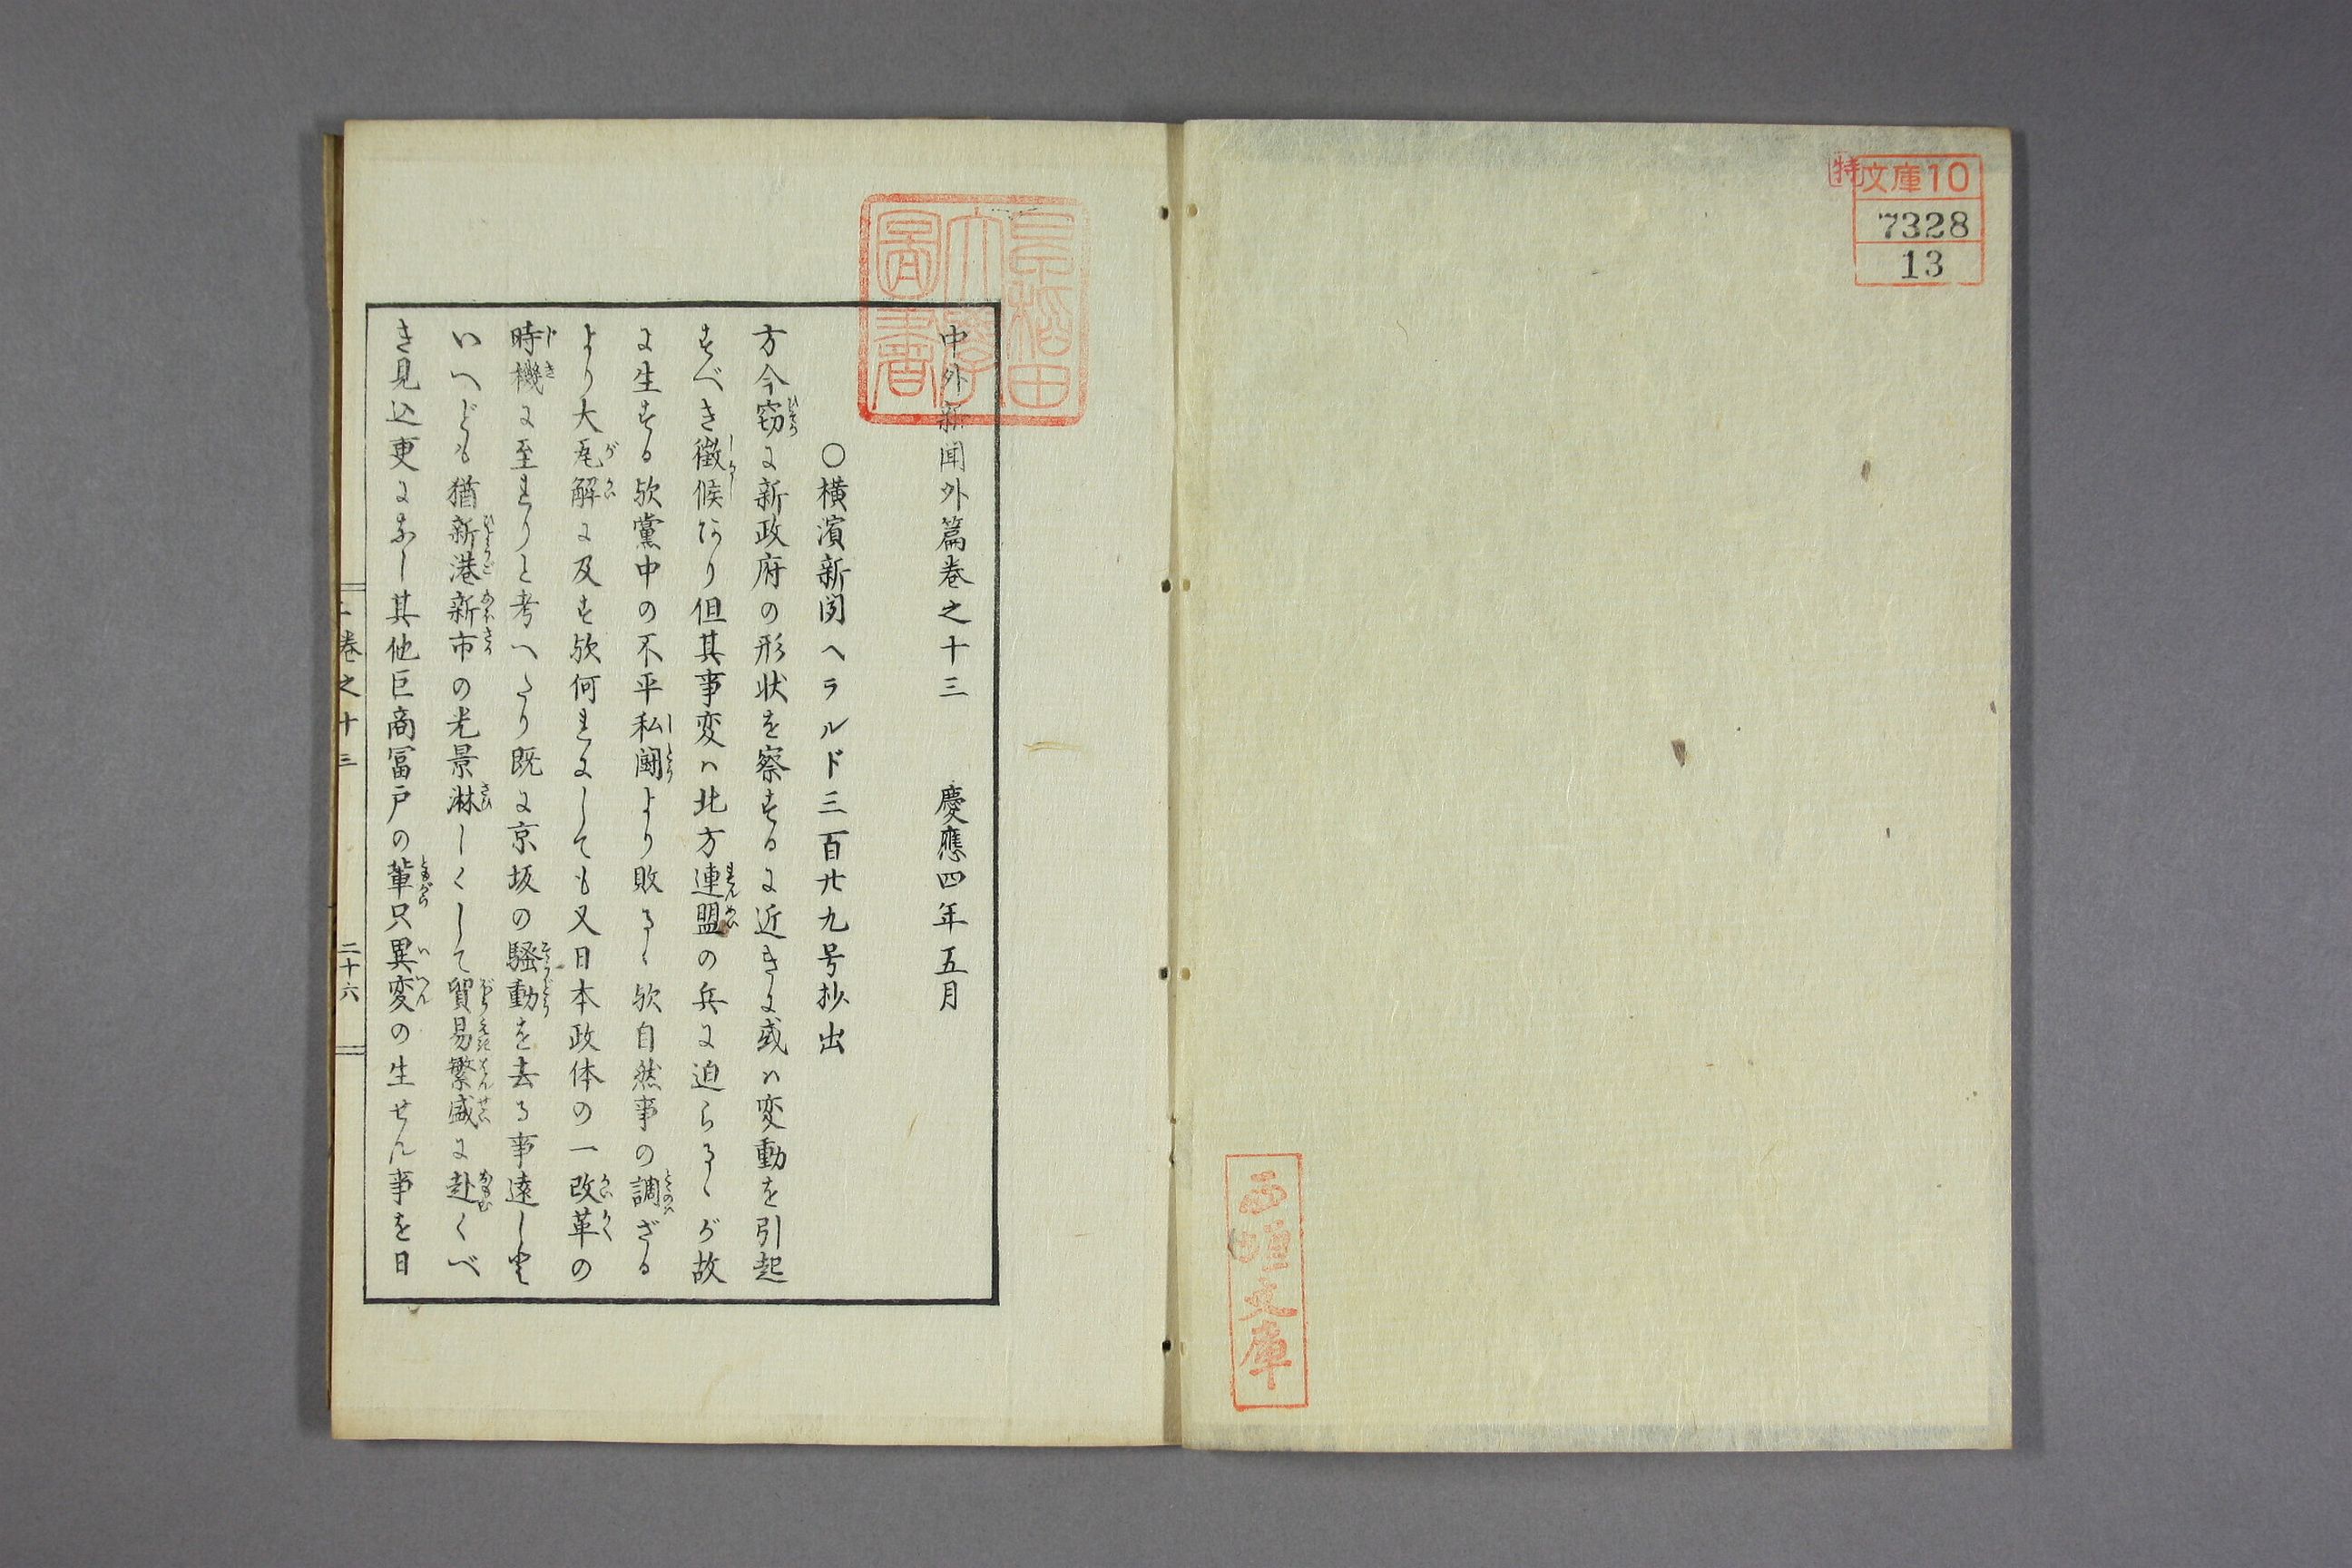 特
文庫10
7328
13
西垣文庫
早稲田
大學
圖書
中外新聞外篇巻之十三 慶應四年五月
○横濱新聞ヘラルド三百廿九号抄出
方今窃に新政府の形状を察するに近きに或は変動を引起
すべき徴候あり但其事変は北方連盟の兵に迫らるゝが故
に生する歟黨中の不平私闘より敗るゝ歟自然事の調ざる
より大瓦解に及す歟何れにしても又日本政体の一改革の
時機に至れりと考へたり既に京坂の騒動を去る事遠しと
いへども猶新港新市の光景淋しくして貿易繁盛に赴くべ
き見込更になし其他巨商冨戸の輩只異変の生せん事を日
巻之十三
二十六